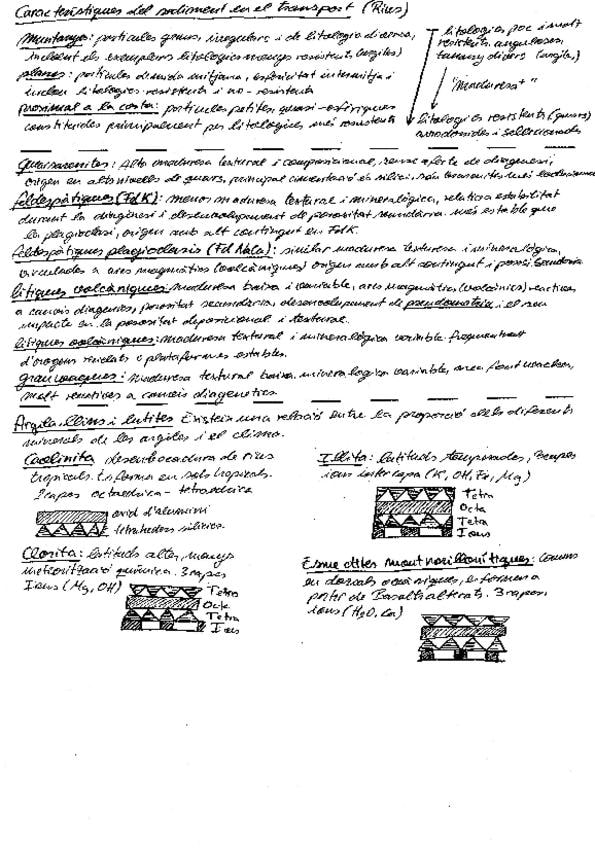 Característiques del sediment en el transport (Rius)
Muntanya: partícules grans, irregulars i de litologia diversa,
inclent els exemplars litologics menys resistents (argiles)
planes: partícules de mida mitjana, esfericitat intermitja i
inclou litologies resistents i no-resistents
proximal a la costa: partícules petites, quasi-esfèriques
constituides principalment per litologies més resistents
litologies poc i molt
resistents, anguloses,
tamany divers (argiles)
"Maduresa +"
litologies resistents (quars)
arrodonides i seleccionades
Quarsarenites: Alta maduresa textural i composicional, sense efecte de diagenesi,
origen en alts nivells de quars, principal cimentació és silici, són
feldespàtiques (Fd K): menor maduresa textural i mineralògica, relativa estabilitat
durant la diagènesi i desenvolupament de porositat secundària. més estable que
la plagioclasi, origen amb alt contingut en FdK.
feldespàtiques plagioclasis (Fd NaCa): similar maduresa textural i mineralògica,
vinculades a arcs magmàtics (volcàniques) origen amb alt contingut i porosi. Secundaria
lítiques volcàniques: maduresa baixa i variable, arcs magmàtics (volcànics) reactives
a canvis diagenics, porositat secundària, desenvolupament de pseudomatriu i el seu
impacte en la porositat deposicional i textural.
lítiques volcàniques: maduresa textural i mineralògica variable. fragmentant
d'orogens reciclats i plataformes estables.
grauvaques: maduresa textural baixa. mineralogica variable,
molt reactives a canvis diagenetics
Argiles, llims i lutites Existeix una relació entre la proporció dels diferents
minerals de les argiles i el clima.
Caolinita desembocadura de rius
tropicals. Es forma en sols tropicals.
2 capes octaedrica - tetraedrica
oxid d'alumini
tetraedres silicics.
Illita: latituds temperades, 3 capes
ions inter capa (K, OH, Fe, Mg)
Tetra
Octa
Tetra
Ions
Clorita: latituds altes, menys
meteorització química. 3 capes
Ions (Mg, OH)
Tetra
Octa
Tetra
Ions
Esmectites montmorillonítiques: Comuns
en dorsals oceàniques, es formen a
partir de Basalts alterats. 3 capes,
ions (H2O, Ca)